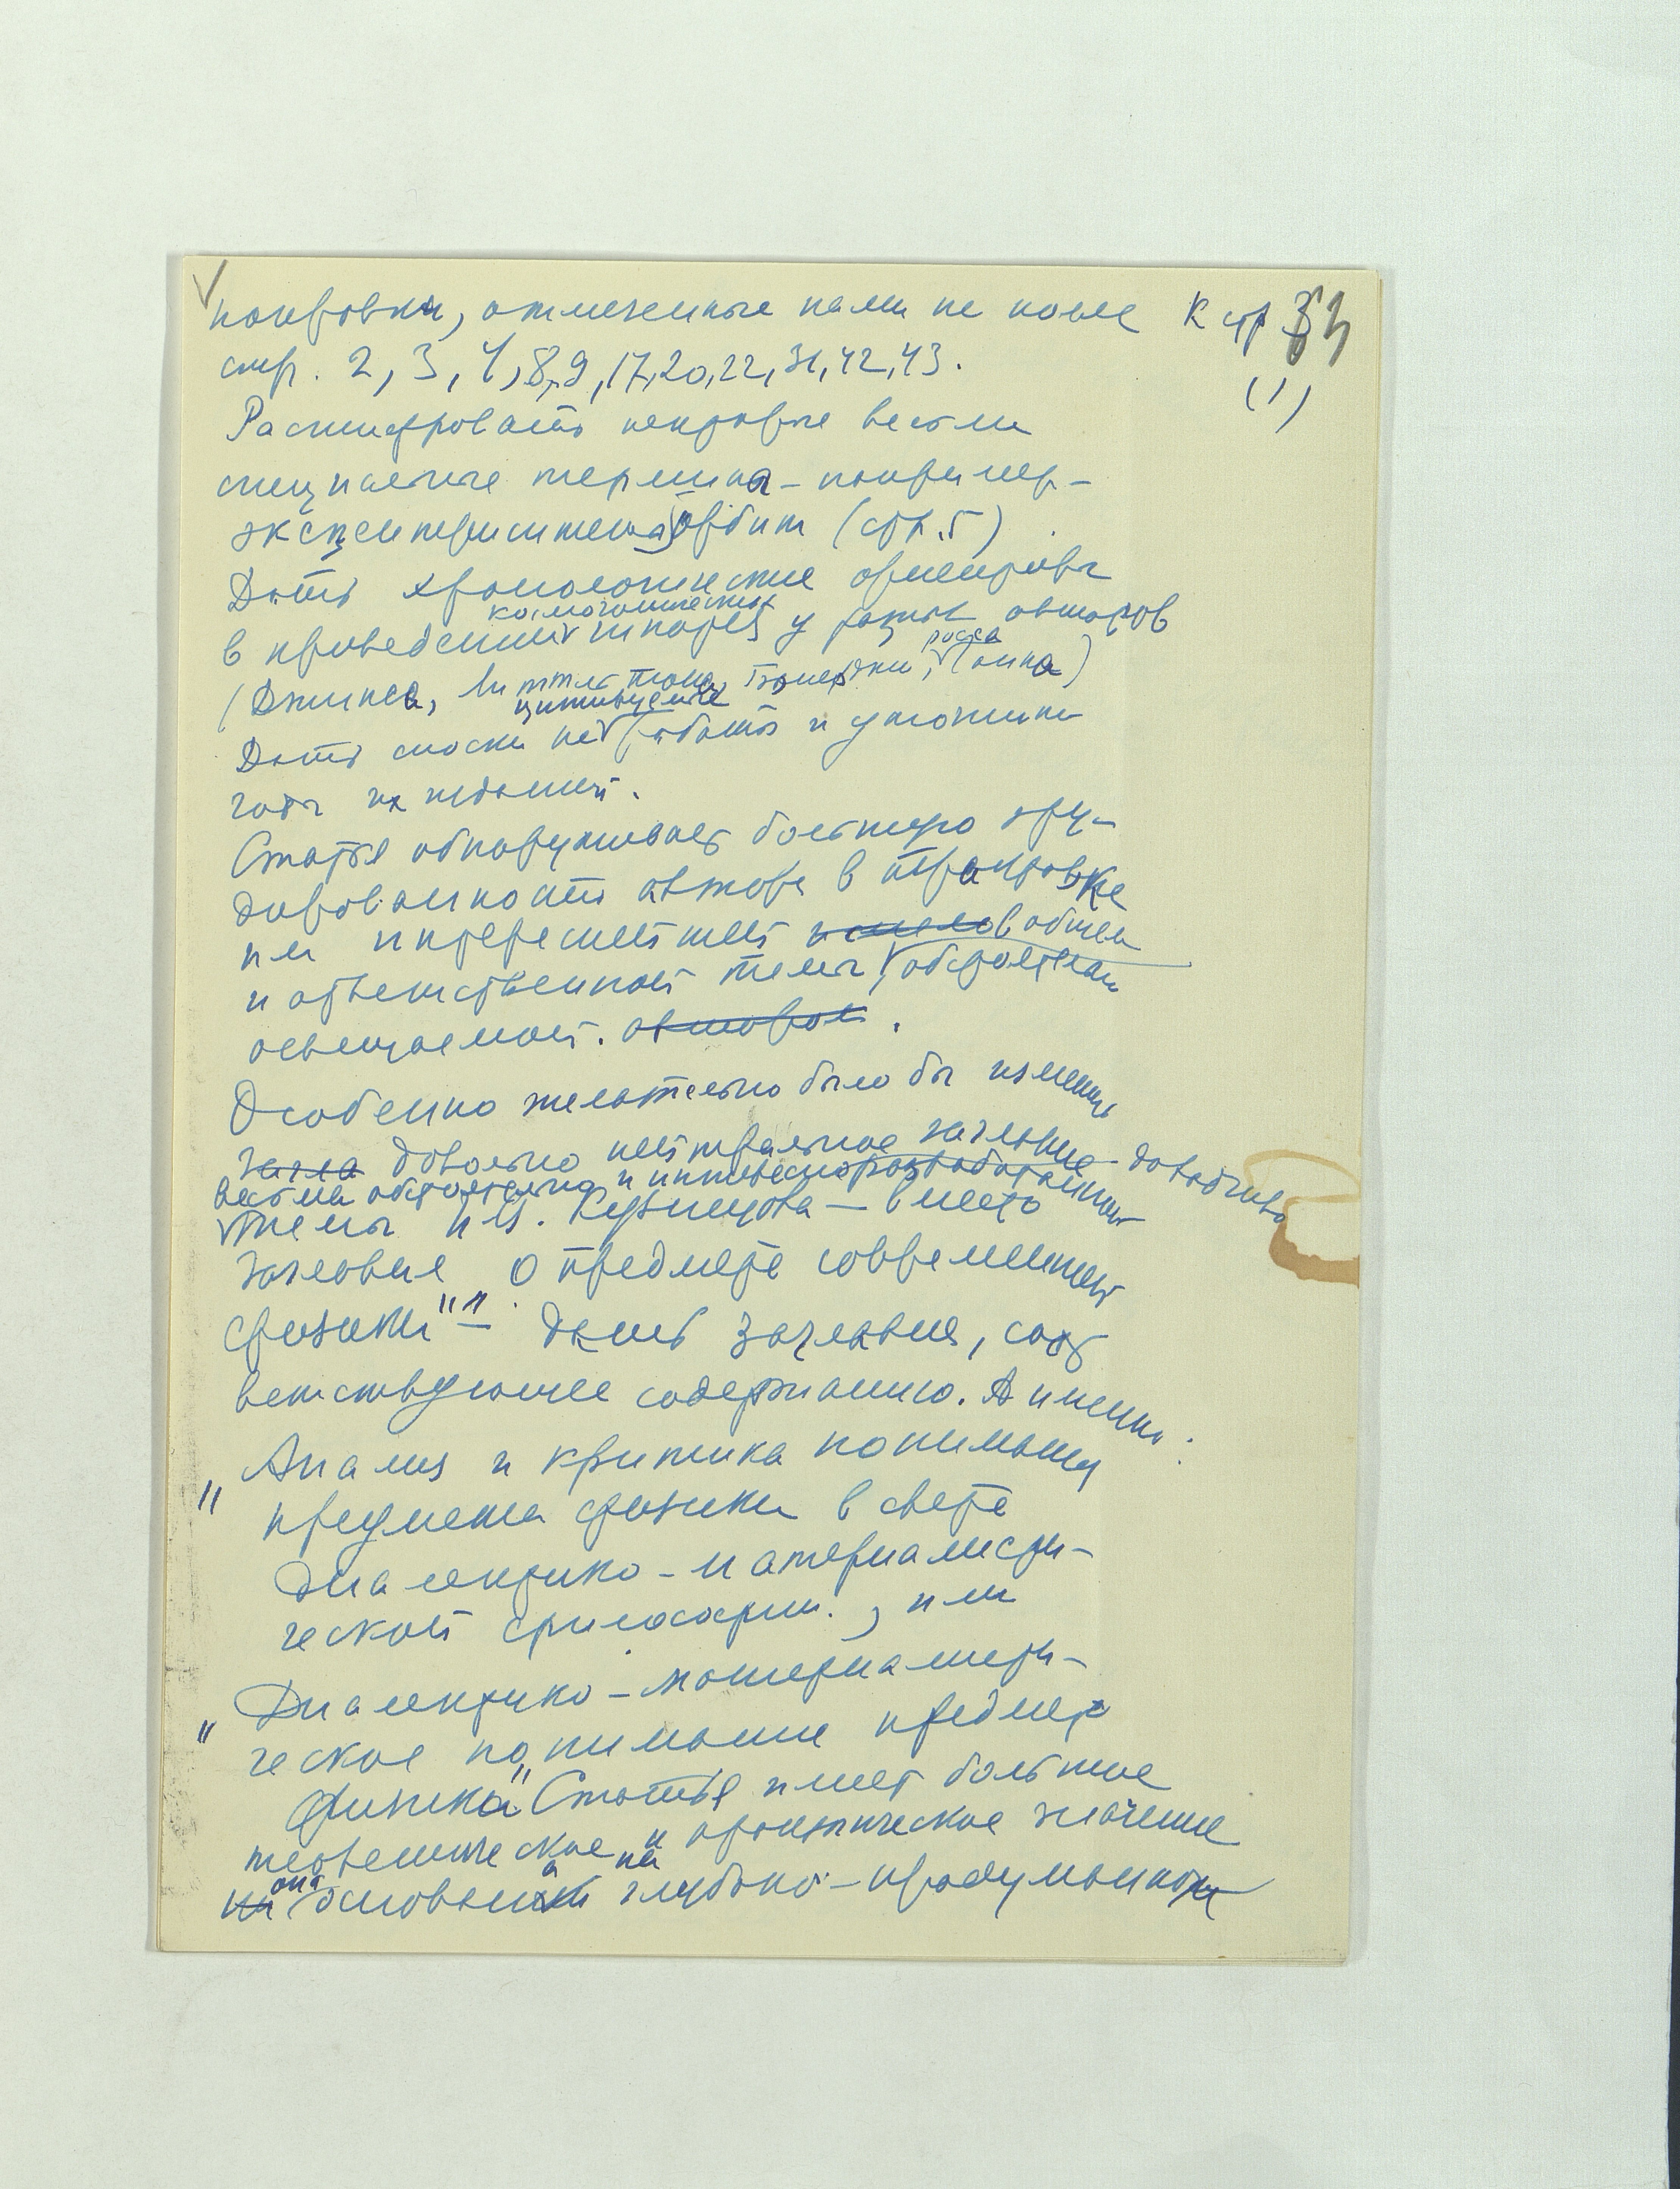 поправки, отмеченные нами на полях К стр 34
стр. 2, 3, 4, 8, 9, 17, 20, 22, 31, 42, 43. (1)
Расшифровать некоторые весьма
специальные термины - например -
эксцентриситета орбит (стр. 5)
Дать хронологические ориентиры
космогонических
в приведении теорий у разных авторов
(Джинса, Литтлтона, росса
Дать сноски на цитируемые работы и уточнить
годы их изданий.
Статья обнаруживает большую эру-
дированность автора в трактовке
им интереснейшей в общем
и ответственной темы, обстоятельно
освещаемой. автором.
Особенно желательно было бы изменить
загла довольно нейтральное заглавие
весьма обстоятельно и интересно разработанной
темы И.В. Кузнецова — вместо
заглавия „О предмете современной
физики" — дать заглавие, соот
ветствующее содержанию. А именно:
„Анализ и критика понимания
предмета физики в свете
диалектико-материалисти-
ческой философии., или
„Диалектико-материалисти-
ческое понимание предмета
физики" Статья имеет большое
теоретическое и практическое значение
она основана на глубоко-продуманном